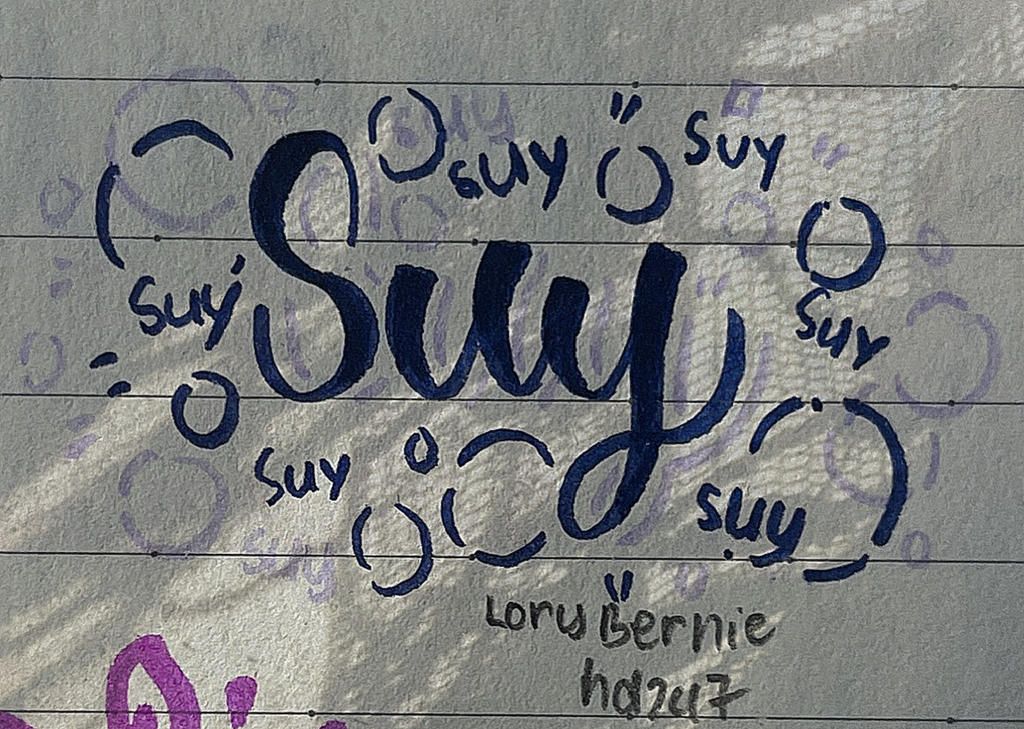 suy
suy
Suy
Suy
suy
suy
suy
suy
Lory Bernie
hd247